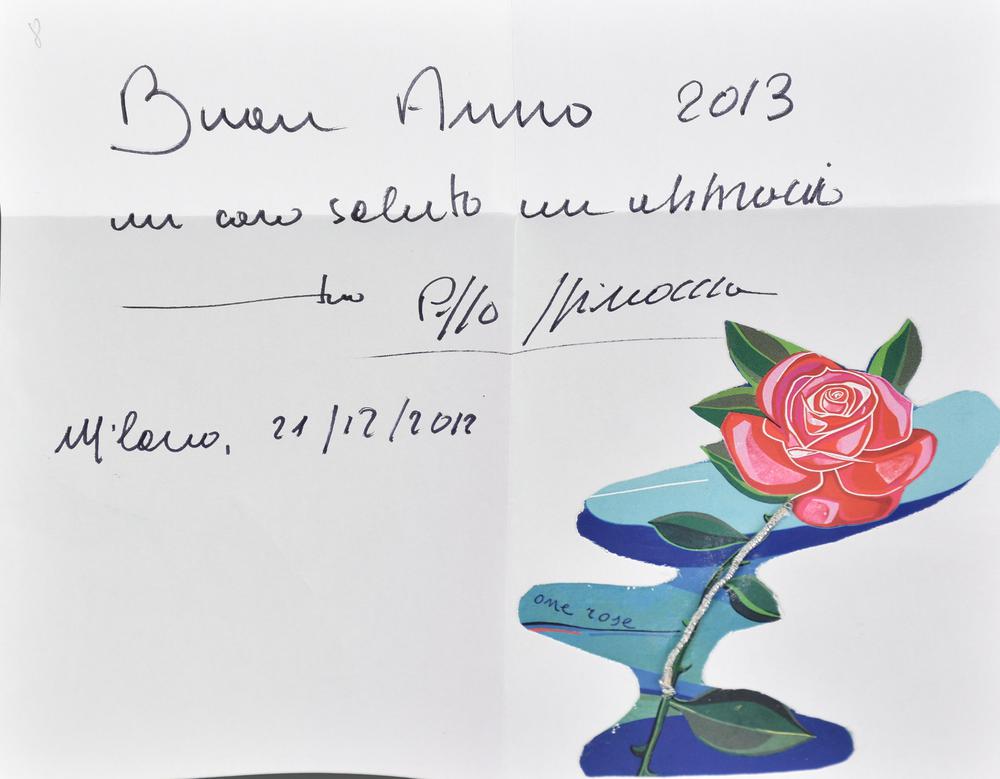 8
Buon Anno 2013
un caro saluto un abbraccio
tuo Pippo Spinoccia
Milano, 21/12/2012
one rose